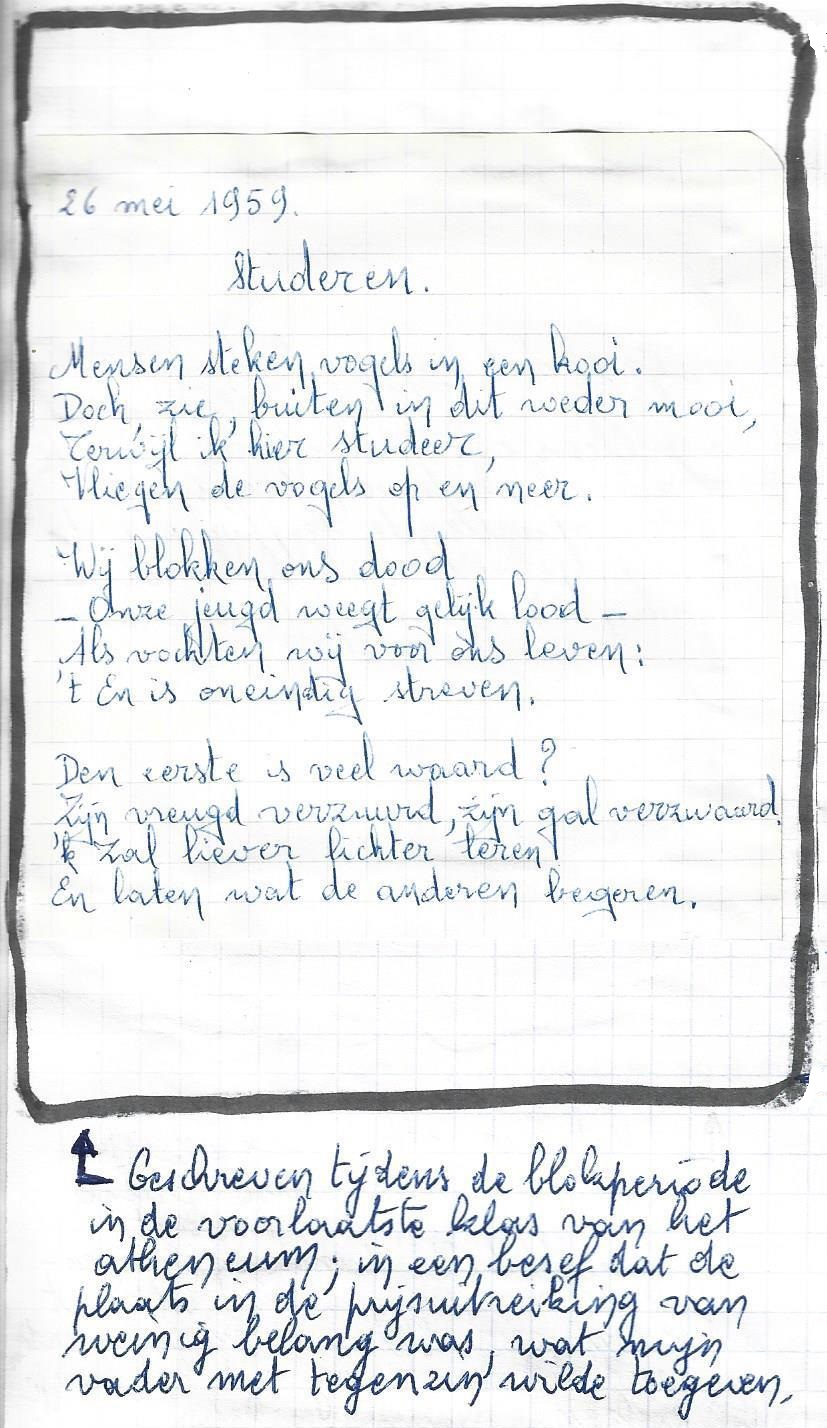 26 mei 1959.
Studeren.
Mensen steken vogels in een kooi.
Doch, zie, buiten in dit weder mooi,
Terwijl ik hier studeer,
Vliegen de vogels op en neer.
Wij blokken ons dood
- Onze jeugd weegt gelijk lood -
Als vochten wij voor ons leven:
't En is oneindig streven.
Den eerste is veel waard?
Zijn vreugd verzuurd, zijn gal verzwaard.
'k Zal liever lichter teren
En laten wat de anderen begeren.
Geschreven tijdens de blokperiode
in de voorlaatste klas van het
atheneum; in een besef dat de
plaats in de prijsuitreiking van
weinig belang was, wat mijn
vader met tegenzin wilde toegeven.